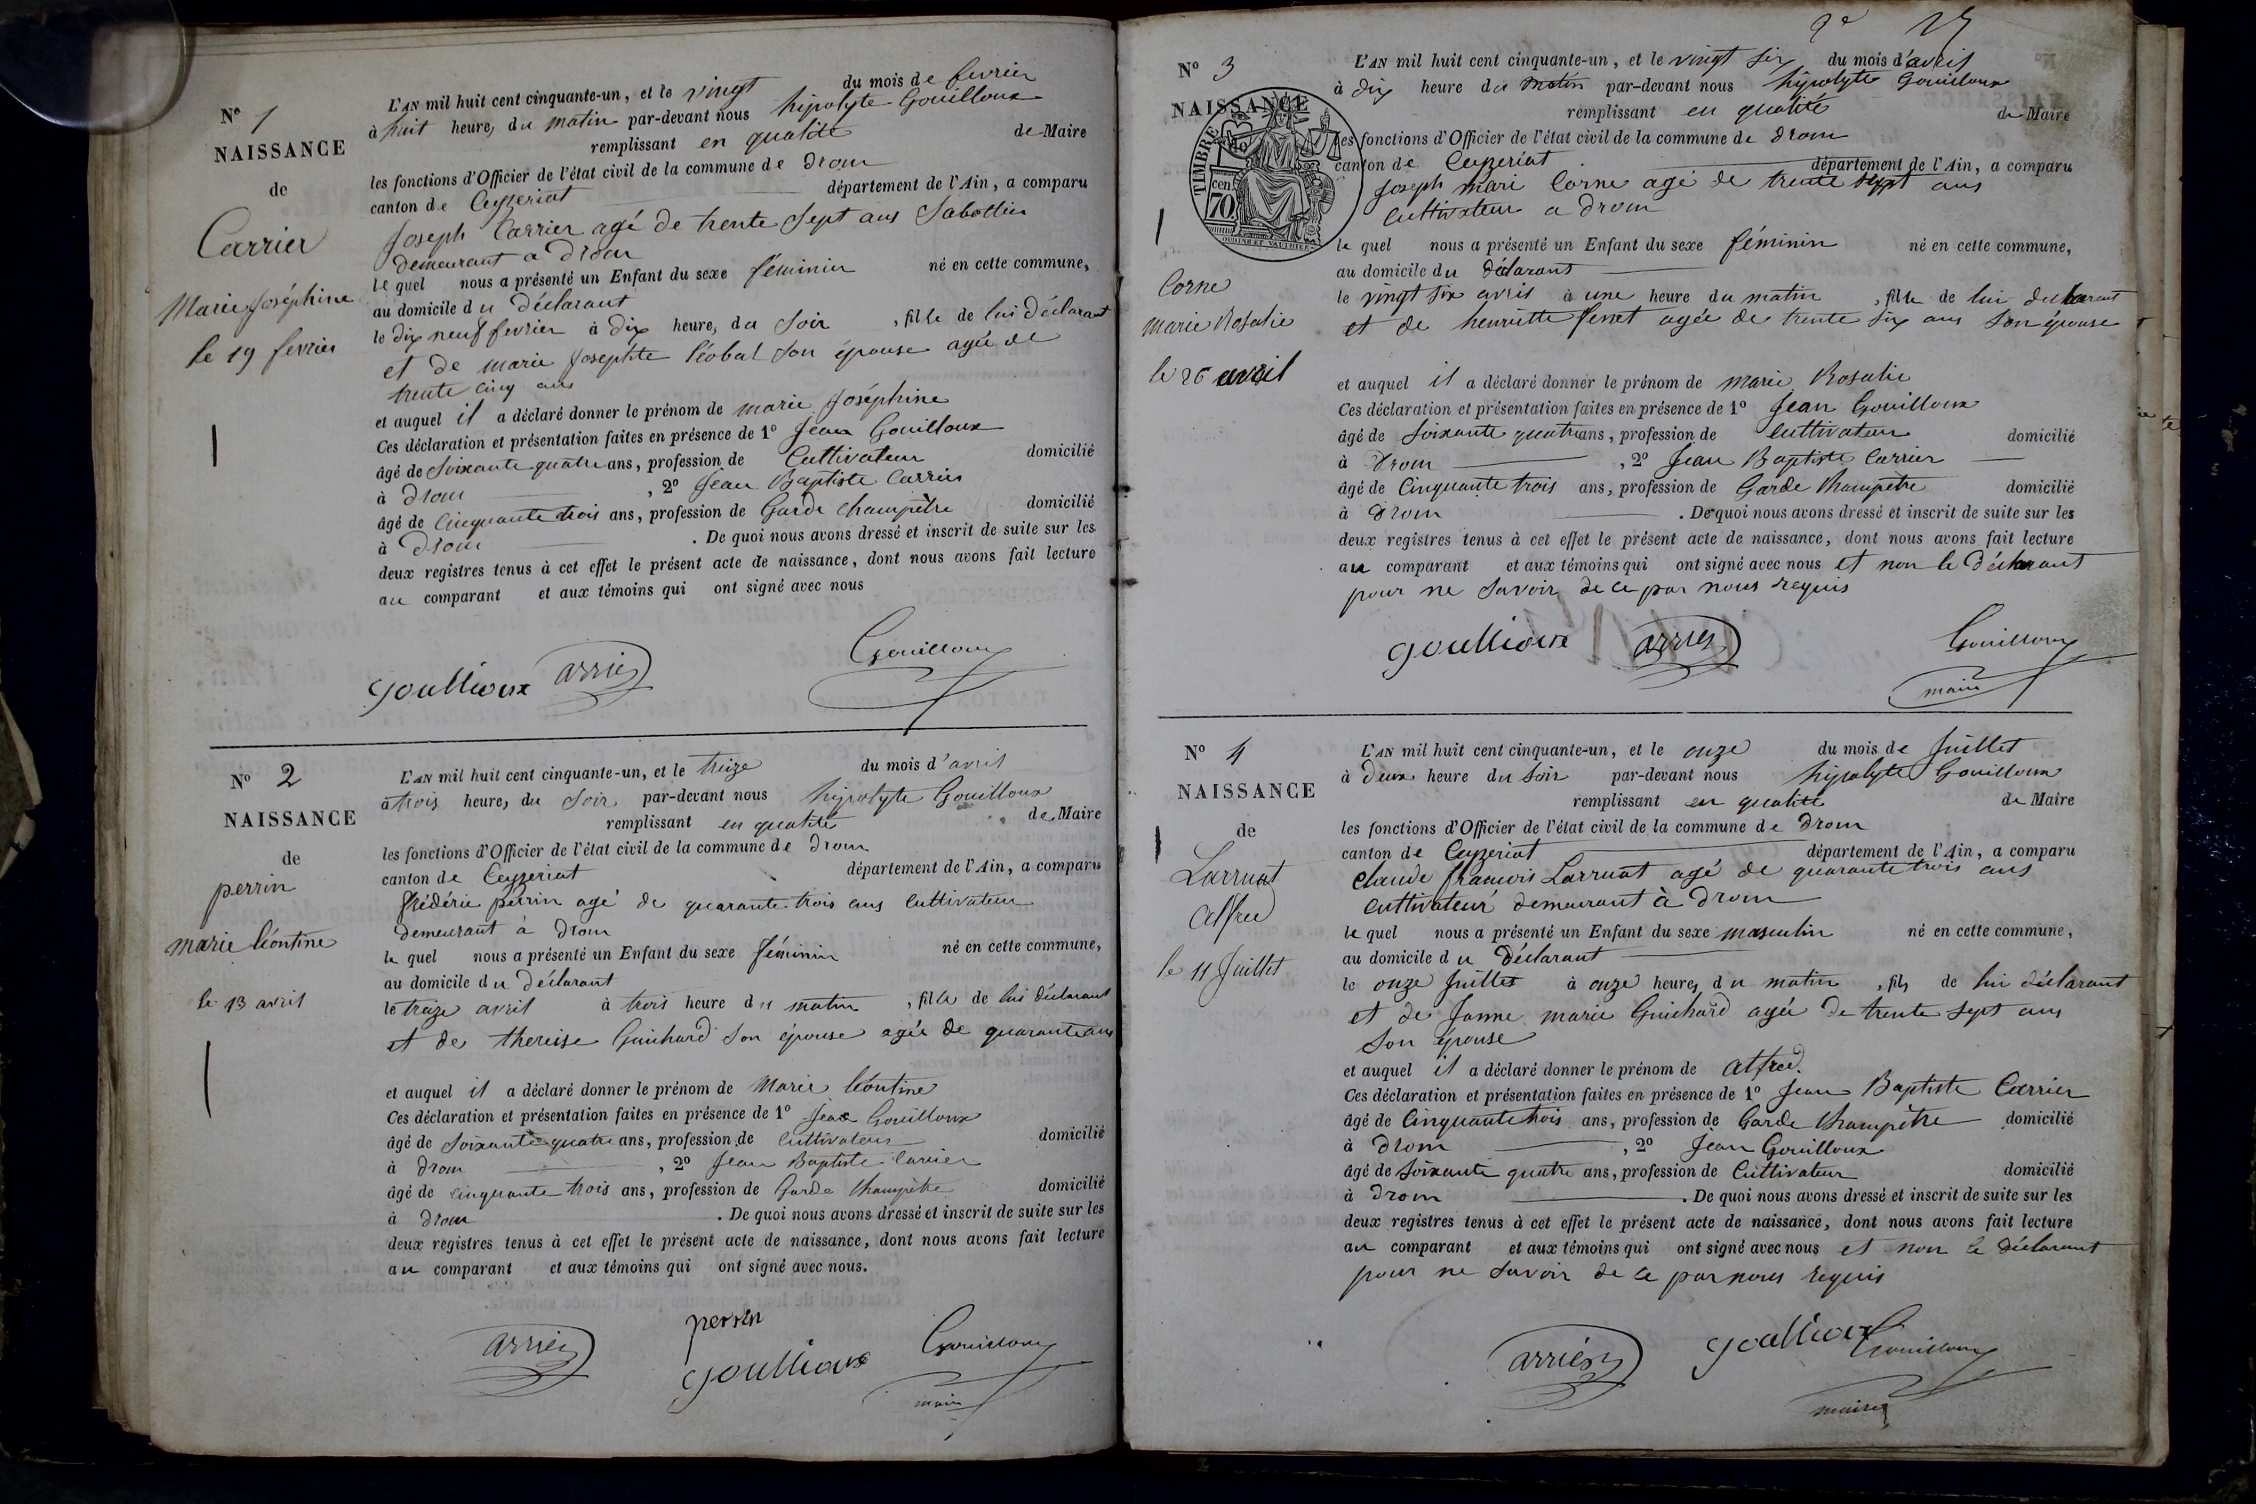 N° 1
NAISSANCE
de
Carrier
Marie Joséphine
le 19 fevrier
L'AN mil huit cent cinquante-un, et le vingt du mois de fevrier
à huit heure, du matin par-devant nous hipolyte Gouilloux
remplissant en qualité de Maire
les fonctions d'Officier de l'état civil de la commune de Drom
canton de Ceyzeriat département de l'Ain, a comparu
Joseph Carrier agé de trente Sept ans Sabottier
demeurant a Drom
le quel nous a présenté un Enfant du sexe féminin né en cette commune,
au domicile du Déclarant
le dix neuf fevrier à dix heure, du Soir, fille de lui Déclarant
et de marie Josephte Son épouse agée de
trente cinq ans
et auquel il a déclaré donner le prénom de marie Joséphine
Ces déclaration et présentation faites en présence de 1° Jean Gouilloux
âgé de Soixante quatre ans, profession de Cultivateur domicilié
à Drom, 2° Jean Baptiste Carrier
âgé de Cinquante trois ans, profession de Garde Champêtre domicilié
à Drom. De quoi nous avons dressé et inscrit de suite sur les
deux registres tenus à cet effet le présent acte de naissance, dont nous avons fait lecture
au comparant et aux témoins qui ont signé avec nous
Gouilloux
goullioux arrier
N° 2
NAISSANCE
de
perrin
marie léontine
le 13 avril
L'AN mil huit cent cinquante-un, et le treize du mois d'avril
à trois heure, du Soir par-devant nous hipolyte Gouilloux
remplissant en qualité de Maire
les fonctions d'Officier de l'état civil de la commune de Drom
canton de Ceyzeriat département de l'Ain, a comparu
frédéric perrin agé de quarante trois ans Cultivateur
demeurant à Drom
le quel nous a présenté un Enfant du sexe féminin né en cette commune,
au domicile du déclarant
le treize avril à trois heure du matin, fille de lui déclarant
et de thereise Guichard Son épouse agée de quarante ans
et auquel il a déclaré donner le prénom de Marie léontine
Ces déclaration et présentation faites en présence de 1° Jean Gouilloux
âgé de Soixante quatre ans, profession de Cultivateur domicilié
à Drom, 2° Jean Baptiste Carrier
âgé de cinquante trois ans, profession de Garde Champêtre domicilié
à Drom. De quoi nous avons dressé et inscrit de suite sur les
deux registres tenus à cet effet le présent acte de naissance, dont nous avons fait lecture
au comparant et aux témoins qui ont signé avec nous.
perrin
arrier goullioux Gouilloux
maire
N° 3
NAISSANCE
TIMBRE
70 cen
OUDINÉ ET VAUTHIER
Corne
Marie Rosalie
le 26 avril
L'AN mil huit cent cinquante-un, et le vingt six du mois d'avril
à dix heure du matin par-devant nous hipolyte Gouilloux
remplissant en qualité de Maire
les fonctions d'Officier de l'état civil de la commune de Drom
canton de Ceyzeriat département de l'Ain, a comparu
Joseph mari Corne agé de trente sept ans
Cultivateur a Drom
le quel nous a présenté un Enfant du sexe féminin né en cette commune,
au domicile du déclarant
le vingt six avril à une heure du matin, fille de lui declarant
et de henriette ferret agée de trente six ans Son épouse
et auquel il a déclaré donner le prénom de marie Rosalie
Ces déclaration et présentation faites en présence de 1° Jean Gouilloux
âgé de Soixante quatre ans, profession de Cultivateur domicilié
à Drom, 2° Jean Baptiste Carrier
âgé de Cinquante trois ans, profession de Garde Champêtre domicilié
à Drom. De quoi nous avons dressé et inscrit de suite sur les
deux registres tenus à cet effet le présent acte de naissance, dont nous avons fait lecture
au comparant et aux témoins qui ont signé avec nous et non le déclarant
pour ne Savoir de ce par nous requis
goullioux arrier Gouilloux
maire
N° 4
NAISSANCE
de
Larruat
Alfred
le 11 Juillet
L'AN mil huit cent cinquante-un, et le onze du mois de Juillet
à deux heure du Soir par-devant nous hipolyte Gouilloux
remplissant en qualité de Maire
les fonctions d'Officier de l'état civil de la commune de Drom
canton de Ceyzeriat département de l'Ain, a comparu
Claude francois Larruat agé de quarante trois ans
Cultivateur demeurant à Drom
le quel nous a présenté un Enfant du sexe masculin né en cette commune,
au domicile du Déclarant
le onze Juillet à onze heure, du matin, fils de lui déclarant
et de Janne marie Guichard agée de trente sept ans
Son épouse
et auquel il a déclaré donner le prénom de Alfred.
Ces déclaration et présentation faites en présence de 1° Jean Baptiste Carrier
âgé de Cinquante trois ans, profession de Garde Champêtre domicilié
à Drom, 2° Jean Gouilloux
âgé de Soixante quatre ans, profession de Cultivateur domicilié
à Drom. De quoi nous avons dressé et inscrit de suite sur les
deux registres tenus à cet effet le présent acte de naissance, dont nous avons fait lecture
au comparant et aux témoins qui ont signé avec nous et non le déclarant
pour ne Savoir de ce par nous requis
arrier goullioux Gouilloux
maire